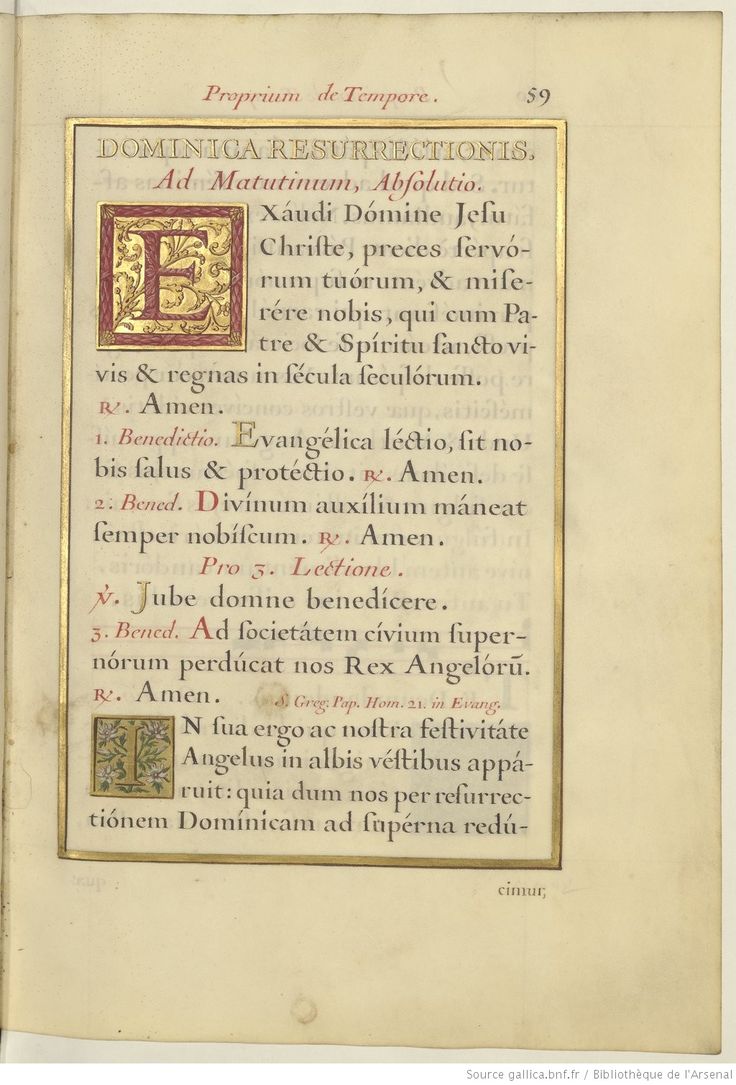 Proprium de Tempore. 59
DOMINICA RESURRECTIONIS.
Ad Matutinum, Abſolutio.
EXáudi Dómine Jeſu
Chriſte, preces ſervó-
rum tuórum, & miſe-
rére nobis, qui cum Pa-
tre & Spíritu ſancto vi-
vis & regnas in ſécula ſeculórum.
℟. Amen.
1. Benedictio. Evangélica léctio, ſit no-
bis ſalus & protéctio. ℟. Amen.
2. Bened. Divínum auxílium máneat
ſemper nobíſcum. ℟. Amen.
Pro 3. Lectione.
℣. Jube domne benedícere.
3. Bened. Ad ſocietátem cívium ſuper-
nórum perdúcat nos Rex Angelórū.
℟. Amen. S. Greg. Pap. Hom. 21. in Evang.
IN ſua ergo ac noſtra feſtivitáte
Angelus in albis véſtibus appá-
ruit: quia dum nos per reſurrec-
tiónem Domínicam ad ſupérna redú-
cimur,
Source gallica.bnf.fr / Bibliothèque de l'Arsenal